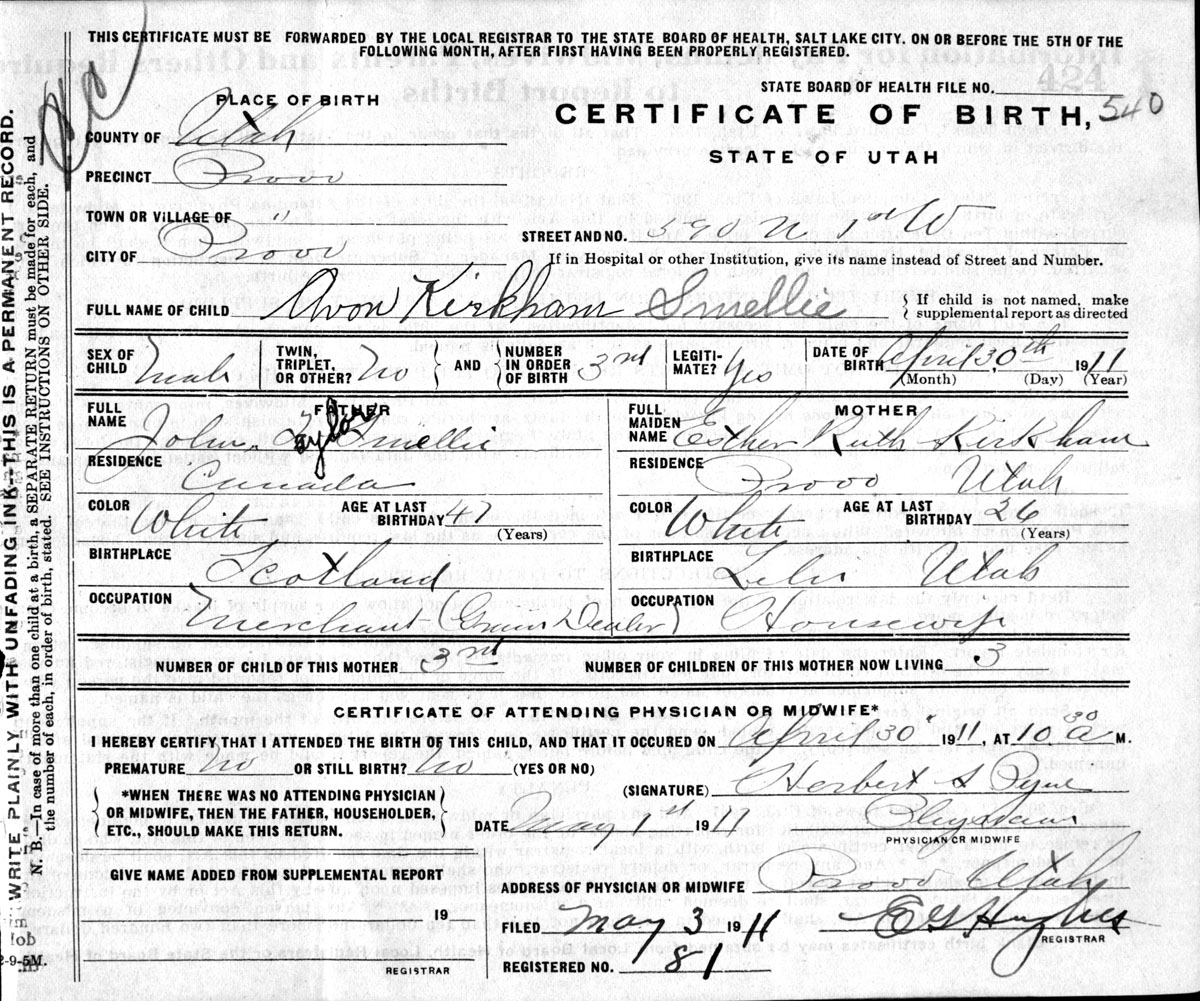 THIS CERTIFICATE MUST BE FORWARDED BY THE LOCAL REGISTRAR TO THE STATE BOARD OF HEALTH, SALT LAKE CITY, ON OR BEFORE THE 5TH OF THE
FOLLOWING MONTH, AFTER FIRST HAVING BEEN PROPERLY REGISTERED.
STATE BOARD OF HEALTH FILE NO.
PLACE OF BIRTH
CERTIFICATE OF BIRTH, 540
COUNTY OF Utah
STATE OF UTAH
PRECINCT Provo
TOWN OR VILLAGE OF "
STREET AND NO. 390 N 1st W
CITY OF Provo
If in Hospital or other Institution, give its name instead of Street and Number.
FULL NAME OF CHILD Avon Kirkham Smellie
If child is not named, make
supplemental report as directed
SEX OF CHILD Male TWIN, TRIPLET, OR OTHER? No AND NUMBER IN ORDER OF BIRTH 3rd LEGITI-MATE? Yes DATE OF BIRTH April 30th 1911
(Month) (Day) (Year)
FATHER MOTHER
FULL NAME John Smellie FULL MAIDEN NAME Esther Ruth Kirkham
RESIDENCE Canada RESIDENCE Provo Utah
COLOR White AGE AT LAST BIRTHDAY 47 (Years) COLOR White AGE AT LAST BIRTHDAY 26 (Years)
BIRTHPLACE Scotland BIRTHPLACE Lehi Utah
OCCUPATION Merchant (Grain Dealer) OCCUPATION Housewife
NUMBER OF CHILD OF THIS MOTHER 3rd NUMBER OF CHILDREN OF THIS MOTHER NOW LIVING 3
CERTIFICATE OF ATTENDING PHYSICIAN OR MIDWIFE*
I HEREBY CERTIFY THAT I ATTENDED THE BIRTH OF THIS CHILD, AND THAT IT OCCURRED ON April 30" 1911, AT 10 30 a M.
PREMATURE No OR STILL BIRTH? No (YES OR NO)
(SIGNATURE) Herbert S Pyne
*WHEN THERE WAS NO ATTENDING PHYSICIAN
OR MIDWIFE, THEN THE FATHER, HOUSEHOLDER,
ETC., SHOULD MAKE THIS RETURN.
DATE May 1st 1911 Physician
PHYSICIAN OR MIDWIFE
GIVE NAME ADDED FROM SUPPLEMENTAL REPORT
ADDRESS OF PHYSICIAN OR MIDWIFE Provo Utah
19
FILED May 3 1911 E G Hughes
REGISTRAR
REGISTRAR
REGISTERED NO. 181
WRITE PLAINLY WITH UNFADING INK—THIS IS A PERMANENT RECORD.
N. B.—In case of more than one child at a birth, a SEPARATE RETURN must be made for each, and
the number of each, in order of birth, stated. SEE INSTRUCTIONS ON OTHER SIDE.
Job
2-9-5M.